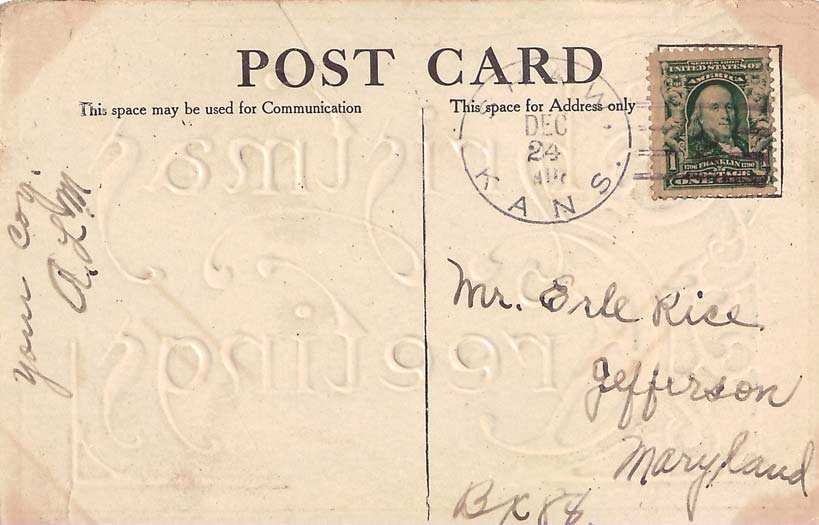 POST CARD
This space may be used for Communication
This space for Address only
DEC
24
KANS.
SERIES 1902
UNITED STATES OF
AMERICA
1706 FRANKLIN 1790
1
POSTAGE
ONE CENT
Your Coz.
A. L. M
Mr. Erle Rice
Jefferson
Maryland
Bx 88.
Christmas
Greetings